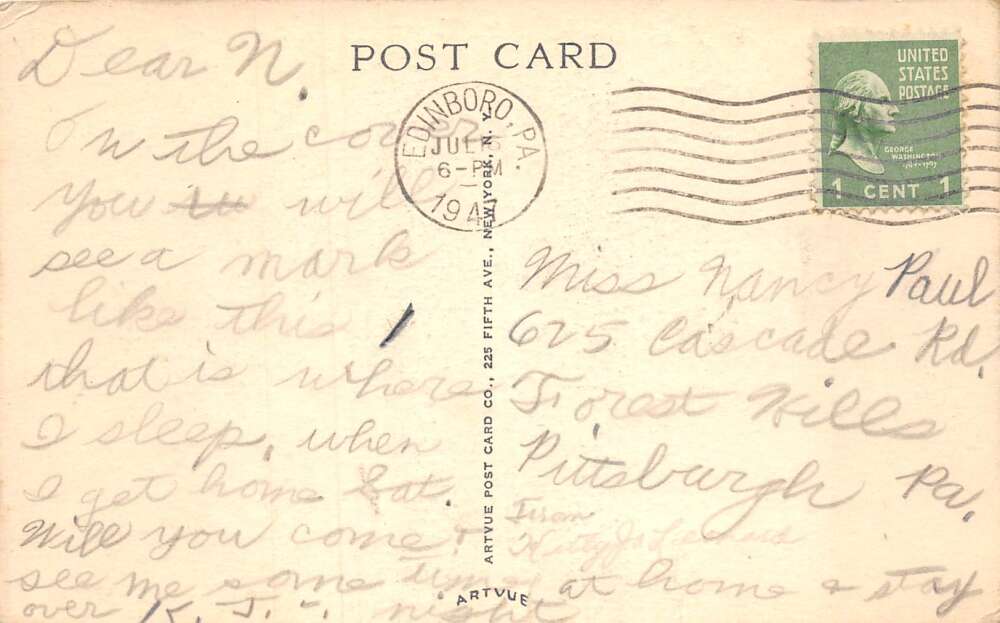 POST CARD
Dear N.
On the cover
you will
see a mark
like this /
that is where
I sleep. when
I get home Sat.
Will you come &
see me some time at home & stay
over night
K. J.
EDINBORO, PA.
JUL
6-PM
194
UNITED
STATES
POSTAGE
GEORGE
WASHINGTON
1789-1797
1 CENT 1
Miss Nancy Paul
625 Cascade Rd.
Forest Hills
Pittsburgh Pa.
From
Kitty Jo
ARTVUE POST CARD CO., 225 FIFTH AVE., NEW YORK, N. Y.
ARTVUE